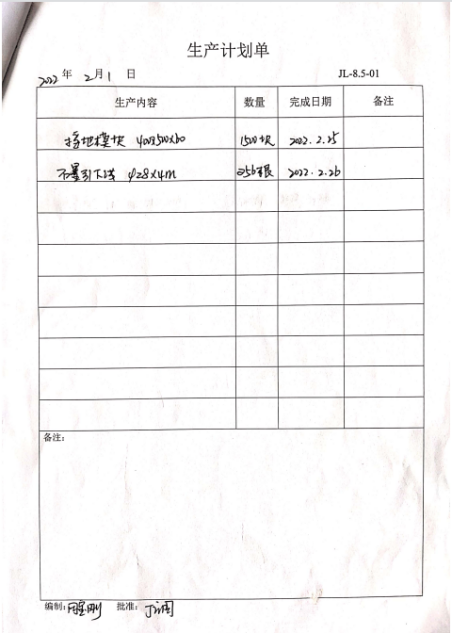 生产计划单
2022年 2月1 日 JL-8.5-01
生产内容 数量 完成日期 备注
接地模块 400x500x60 1500块 2022.2.25
不墨引下线 φ28x4m 256根 2022.2.26
备注:
编制: 批准: